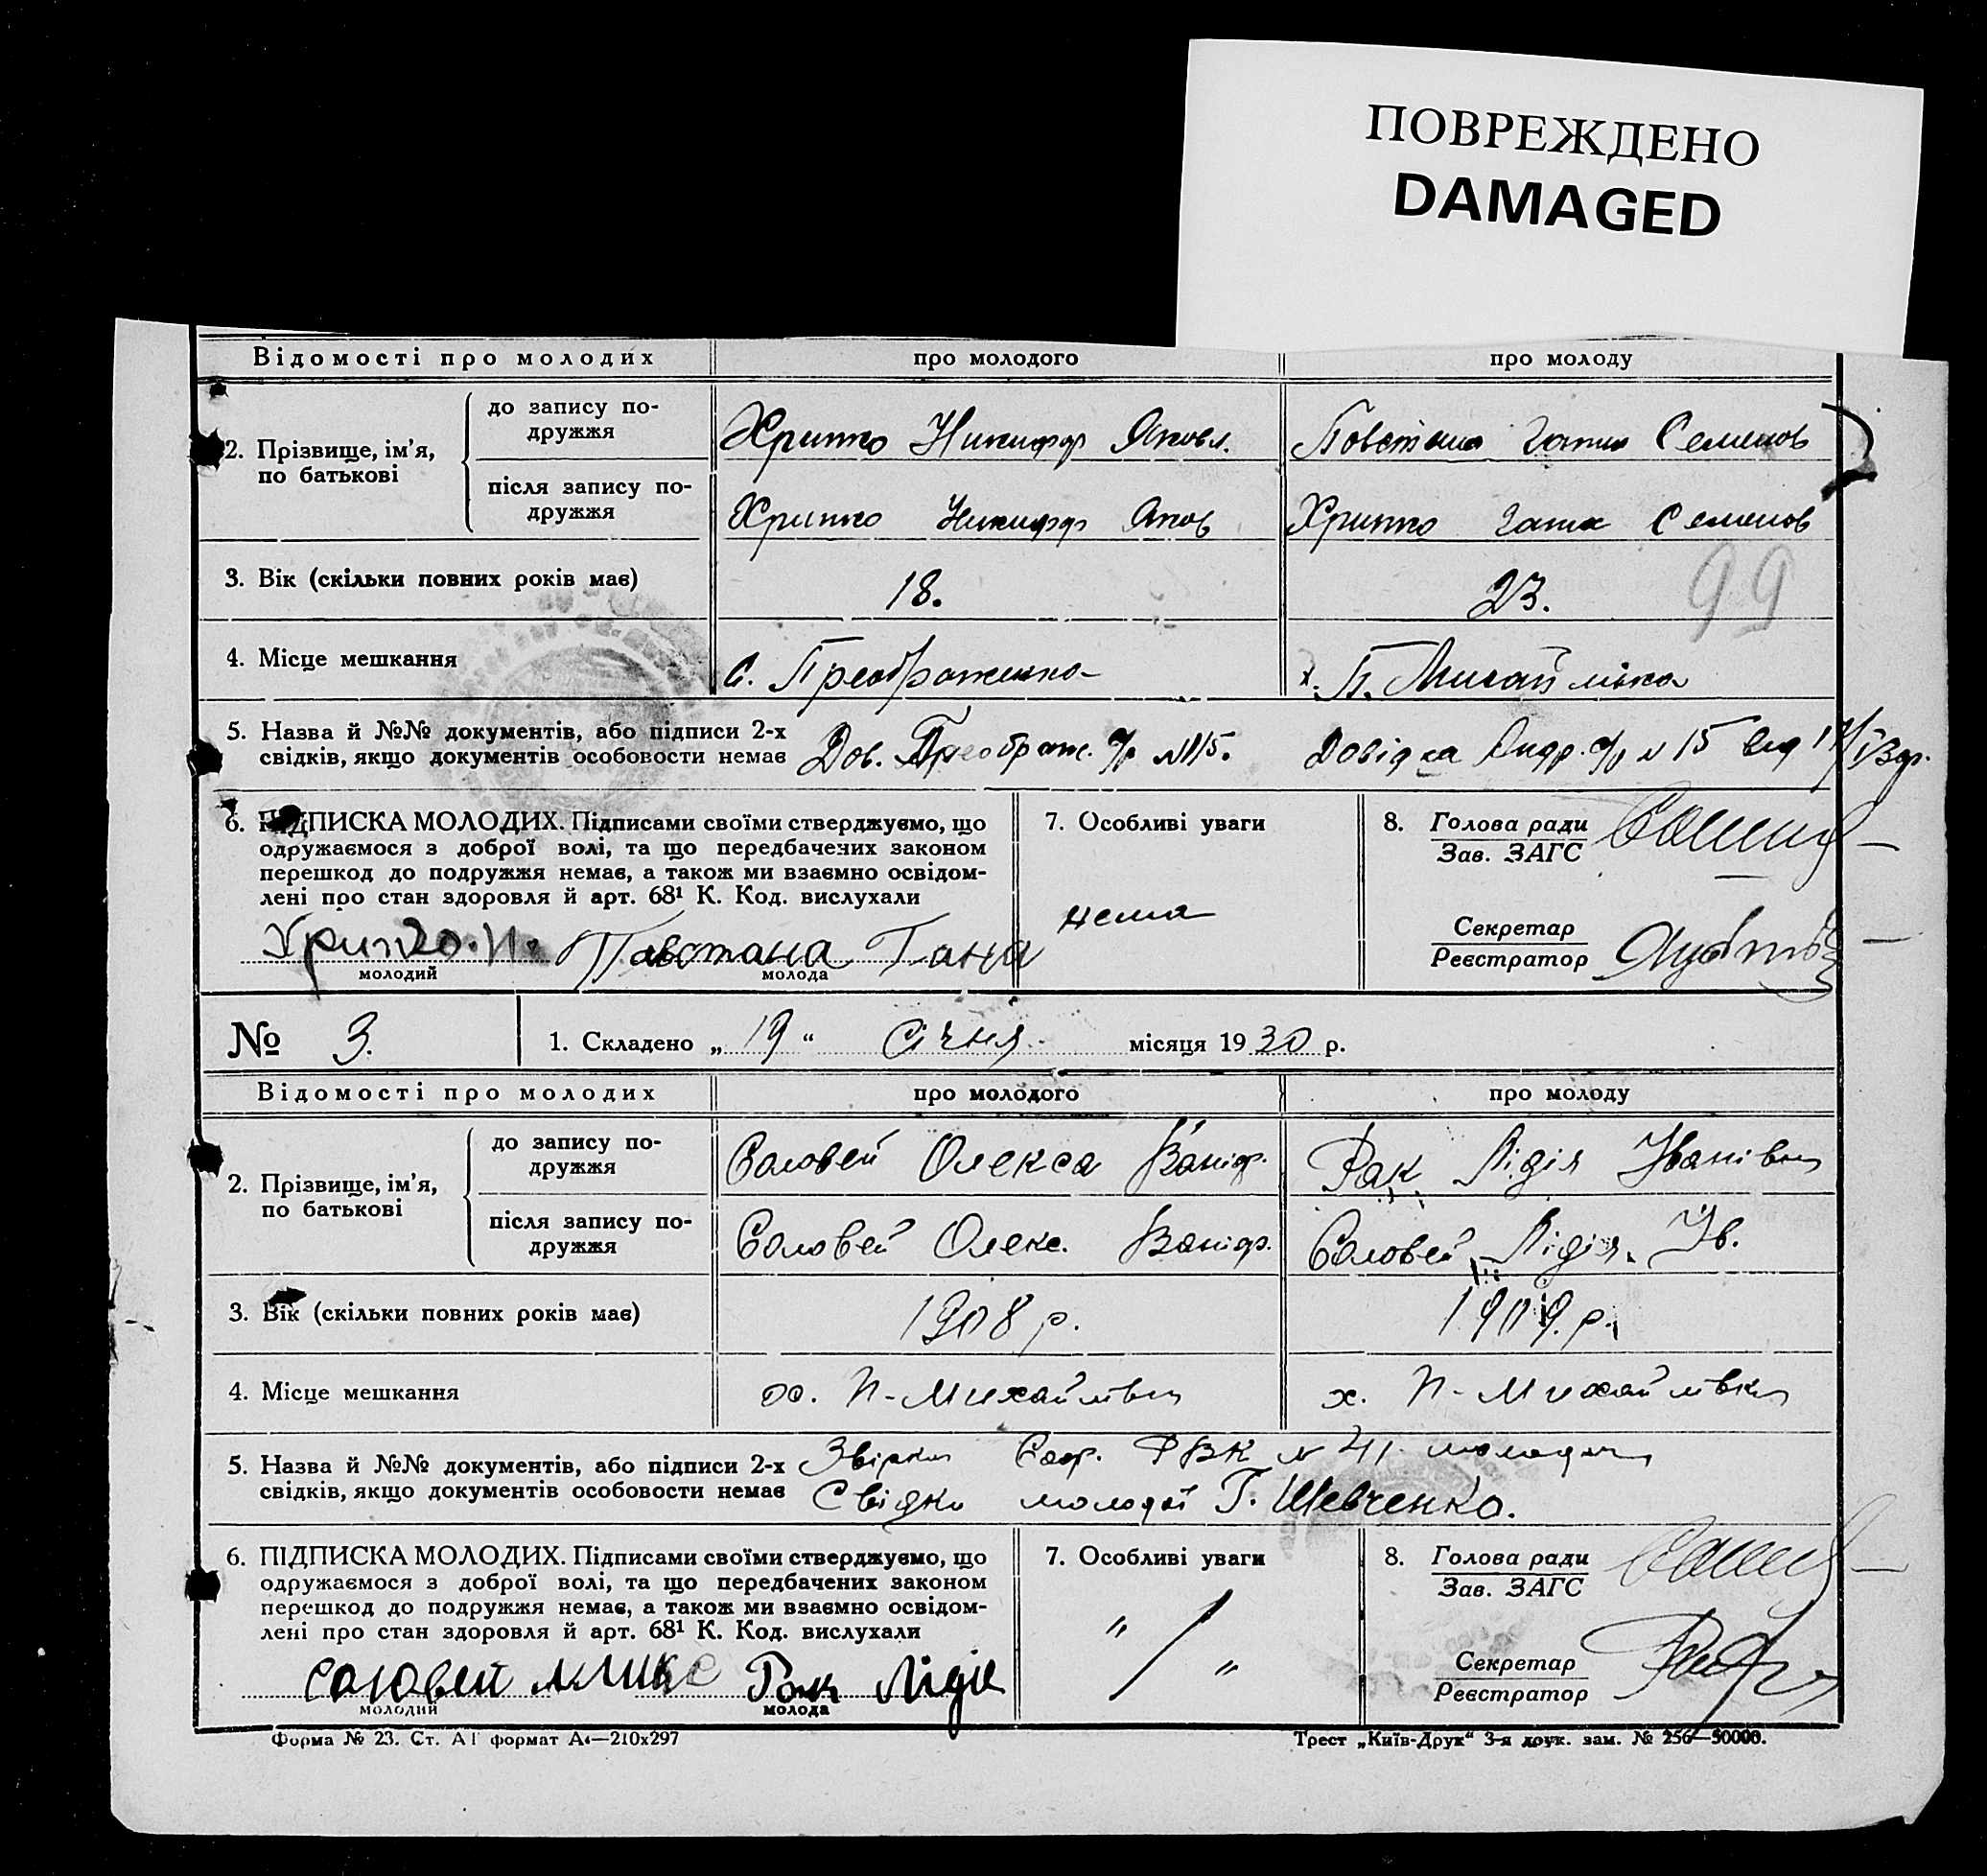 ПОВРЕЖДЕНО
DAMAGED
Відомості про молодих про молодого про молоду
2. Прізвище, ім'я, по батькові
до запису подружжя Хрипко Никифор Яковл. Повстана Ганна Семенов
після запису подружжя Хрипко Никифор Яков Хрипко Ганна Семенов
3. Вік (скільки повних років має) 18. 23. 99
4. Місце мешкання с. Преображенка х. П. Михайлівка
5. Назва й №№ документів, або підписи 2-х
свідків, якщо документів особовости немає Дов. Преображ. с/р №115. Довідка Андр. с/р № 15 від
6. ПІДПИСКА МОЛОДИХ. Підписами своїми стверджуємо, що
одружаємося з доброї волі, та що передбачених законом
перешкод до подружжя немає, а також ми взаємно освідом-
лені про стан здоровля й арт. 68¹ К. Код. вислухали
Хрипко Н. Повстана Гана
молодий молода
7. Особливі уваги
нема
8. Голова ради
Зав. ЗАГС
Секретар
Реєстратор
№ 3. 1. Складено „19“ Січня місяця 1930 р.
Відомості про молодих про молодого про молоду
2. Прізвище, ім'я, по батькові
до запису подружжя Соловей Олекса Рак Лідія Іванівна
після запису подружжя Соловей Олекс. Соловей Лідія Ів.
3. Вік (скільки повних років має) 1908 р. 1909 р.
4. Місце мешкання х. П-Михайлівка х. П-Михайлівка
5. Назва й №№ документів, або підписи 2-х РВК №
свідків, якщо документів особовости немає Свідки молодої Г. Шевченко.
6. ПІДПИСКА МОЛОДИХ. Підписами своїми стверджуємо, що
одружаємося з доброї волі, та що передбачених законом
перешкод до подружжя немає, а також ми взаємно освідом-
лені про стан здоровля й арт. 68¹ К. Код. вислухали
Соловей Рак Лідіе
молодий молода
7. Особливі уваги
" / "
8. Голова ради
Зав. ЗАГС
Секретар
Реєстратор
Форма № 23. Ст. А1 формат А4—210х297 Трест „Київ-Друк“ 3-я друк. зам. № 256—50000.